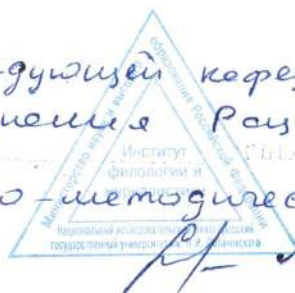 дующей кафе
ния Рац
Институт
филологии и
журналистики
о-методичес
Министерство науки и высшего образования Российской Федерации
Национальный исследовательский Нижегородский
государственный университет им. Н.И. Лобачевского